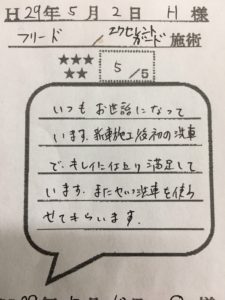 H29年5月2日 H 様
フリード / エクセレントガード 施術
★★★
★★
5/5
いつもお世話になって
います。新車施工後初の洗車
で、キレイに仕上り満足して
います。またセルフ洗車を使わ
せてもらいます。